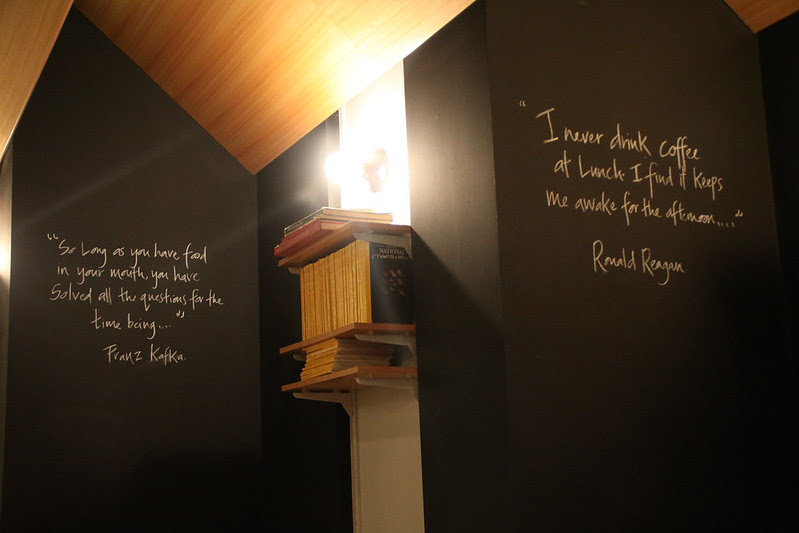 "So Long as you have food
in your mouth, you have
Solved all the questions for the
time being...."
Franz Kafka.
NATIONAL
"I never drink coffee
at Lunch. I find it keeps
me awake for the afternoon...."
Ronald Reagan